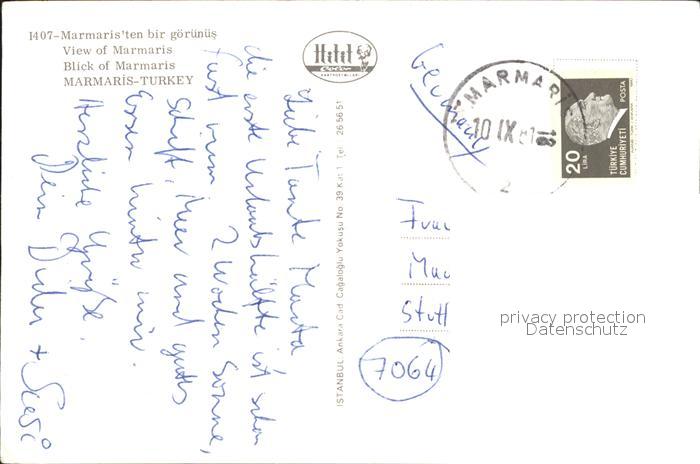 1407-Marmaris'ten bir görünüş
View of Marmaris
Blick of Marmaris
MARMARİS-TURKEY
Liebe Tante Marta
die erste Urlaubshälfte ist schon
fast rum. 2 Wochen Sonne,
Schiff, Meer und gutes
Essen hinter mir.
Herzliche Grüße.
Dein Dieter +
Hitit
KARTPOSTALLARI
İSTANBUL Ankara Cad. Cağaloğlu Yokuşu No 39 Kat 1 Tel: 26 56 51
Germany
MARMARİ
10 IX 81 18
2
20
LİRA
TÜRKİYE
CUMHURİYETİ
POSTA
Frau
Stutt
7064
privacy protection
Datenschutz